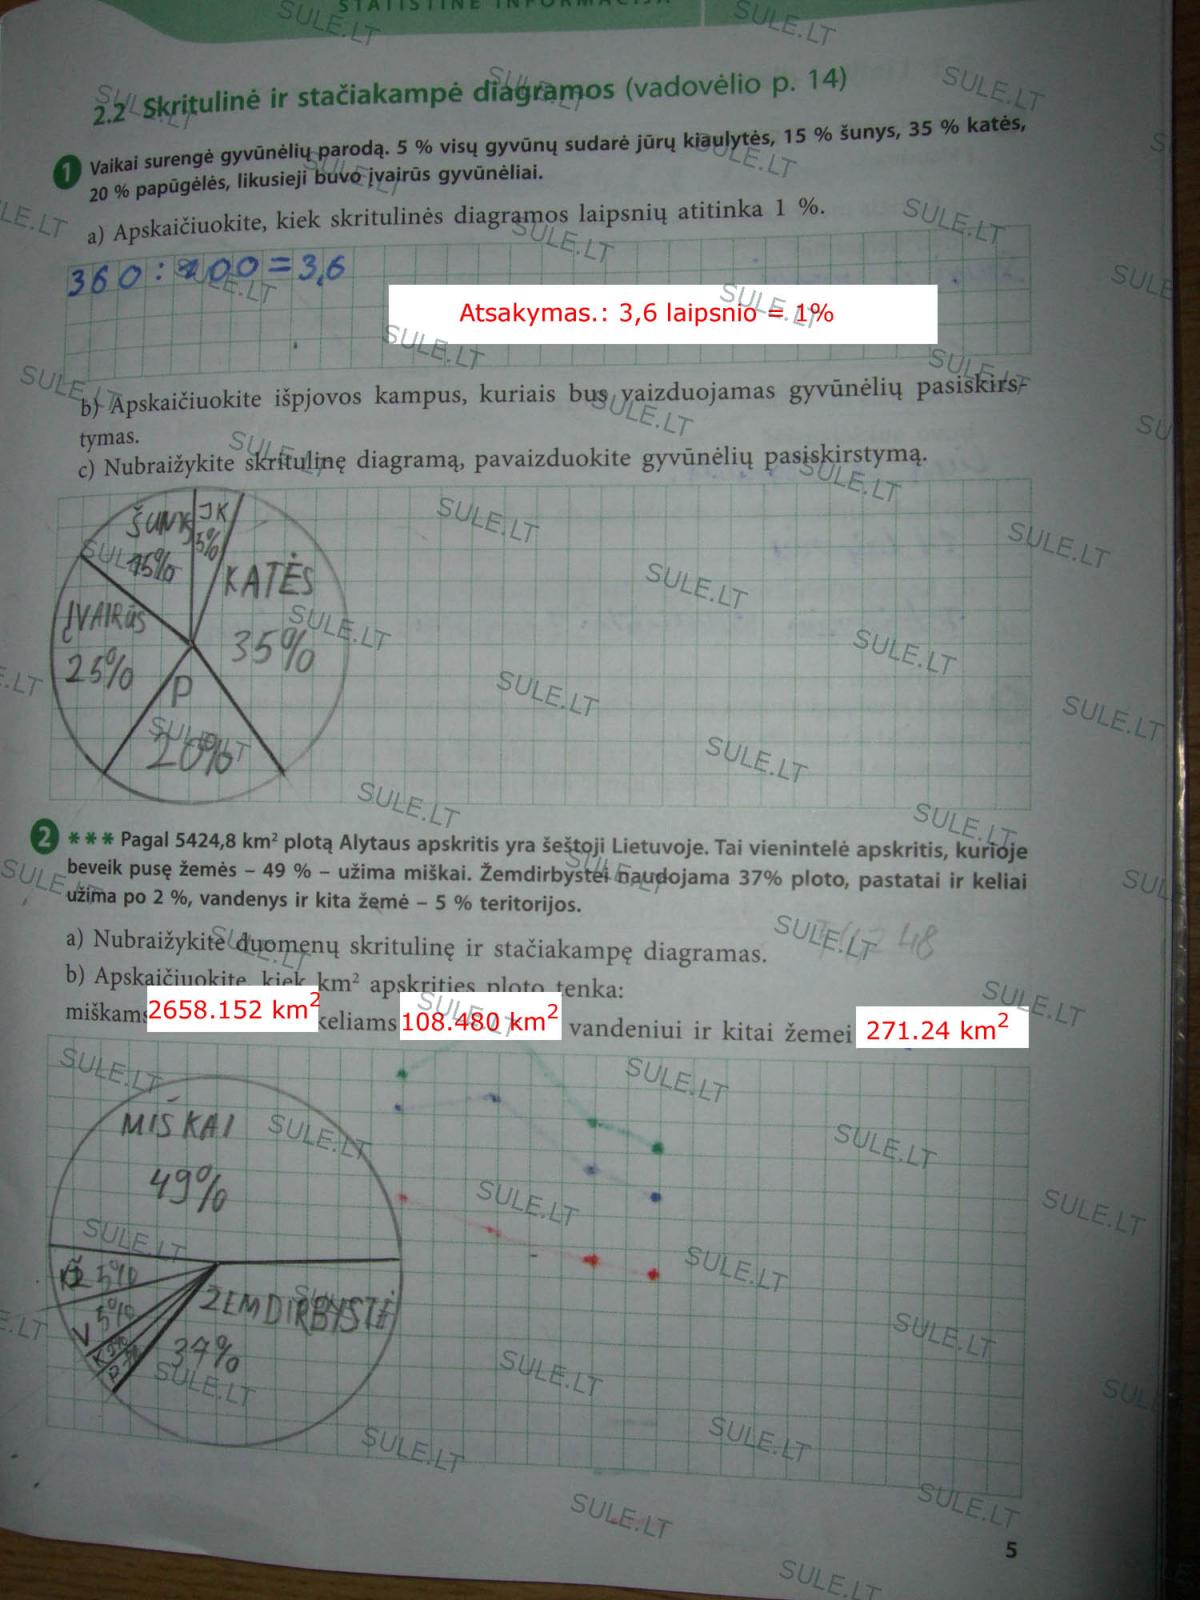 STATISTINĖ INFORMACIJA
2.2 Skritulinė ir stačiakampė diagramos (vadovėlio p. 14)
1 Vaikai surengė gyvūnėlių parodą. 5 % visų gyvūnų sudarė jūrų kiaulytės, 15 % šunys, 35 % katės,
20 % papūgėlės, likusieji buvo įvairūs gyvūnėliai.
a) Apskaičiuokite, kiek skritulinės diagramos laipsnių atitinka 1 %.
360 : 100 = 3,6
Atsakymas.: 3,6 laipsnio = 1%
b) Apskaičiuokite išpjovos kampus, kuriais bus vaizduojamas gyvūnėlių pasiskirs-
tymas.
c) Nubraižykite skritulinę diagramą, pavaizduokite gyvūnėlių pasiskirstymą.
ŠUNYS
15%
JK
5%
KATĖS
35%
ĮVAIRŪS
25%
P
20%
2 *** Pagal 5424,8 km² plotą Alytaus apskritis yra šeštoji Lietuvoje. Tai vienintelė apskritis, kurioje
beveik pusę žemės – 49 % – užima miškai. Žemdirbystei naudojama 37% ploto, pastatai ir keliai
užima po 2 %, vandenys ir kita žemė – 5 % teritorijos.
a) Nubraižykite duomenų skritulinę ir stačiakampę diagramas.
b) Apskaičiuokite, kiek km² apskrities ploto tenka:
miškams 2658.152 km² keliams 108.480 km² vandeniui ir kitai žemei 271.24 km²
MIŠKAI
49%
KŽ 5%
5%
V
K 2%
P
ŽEMDIRBYSTĖ
37%
5
SULE.LT